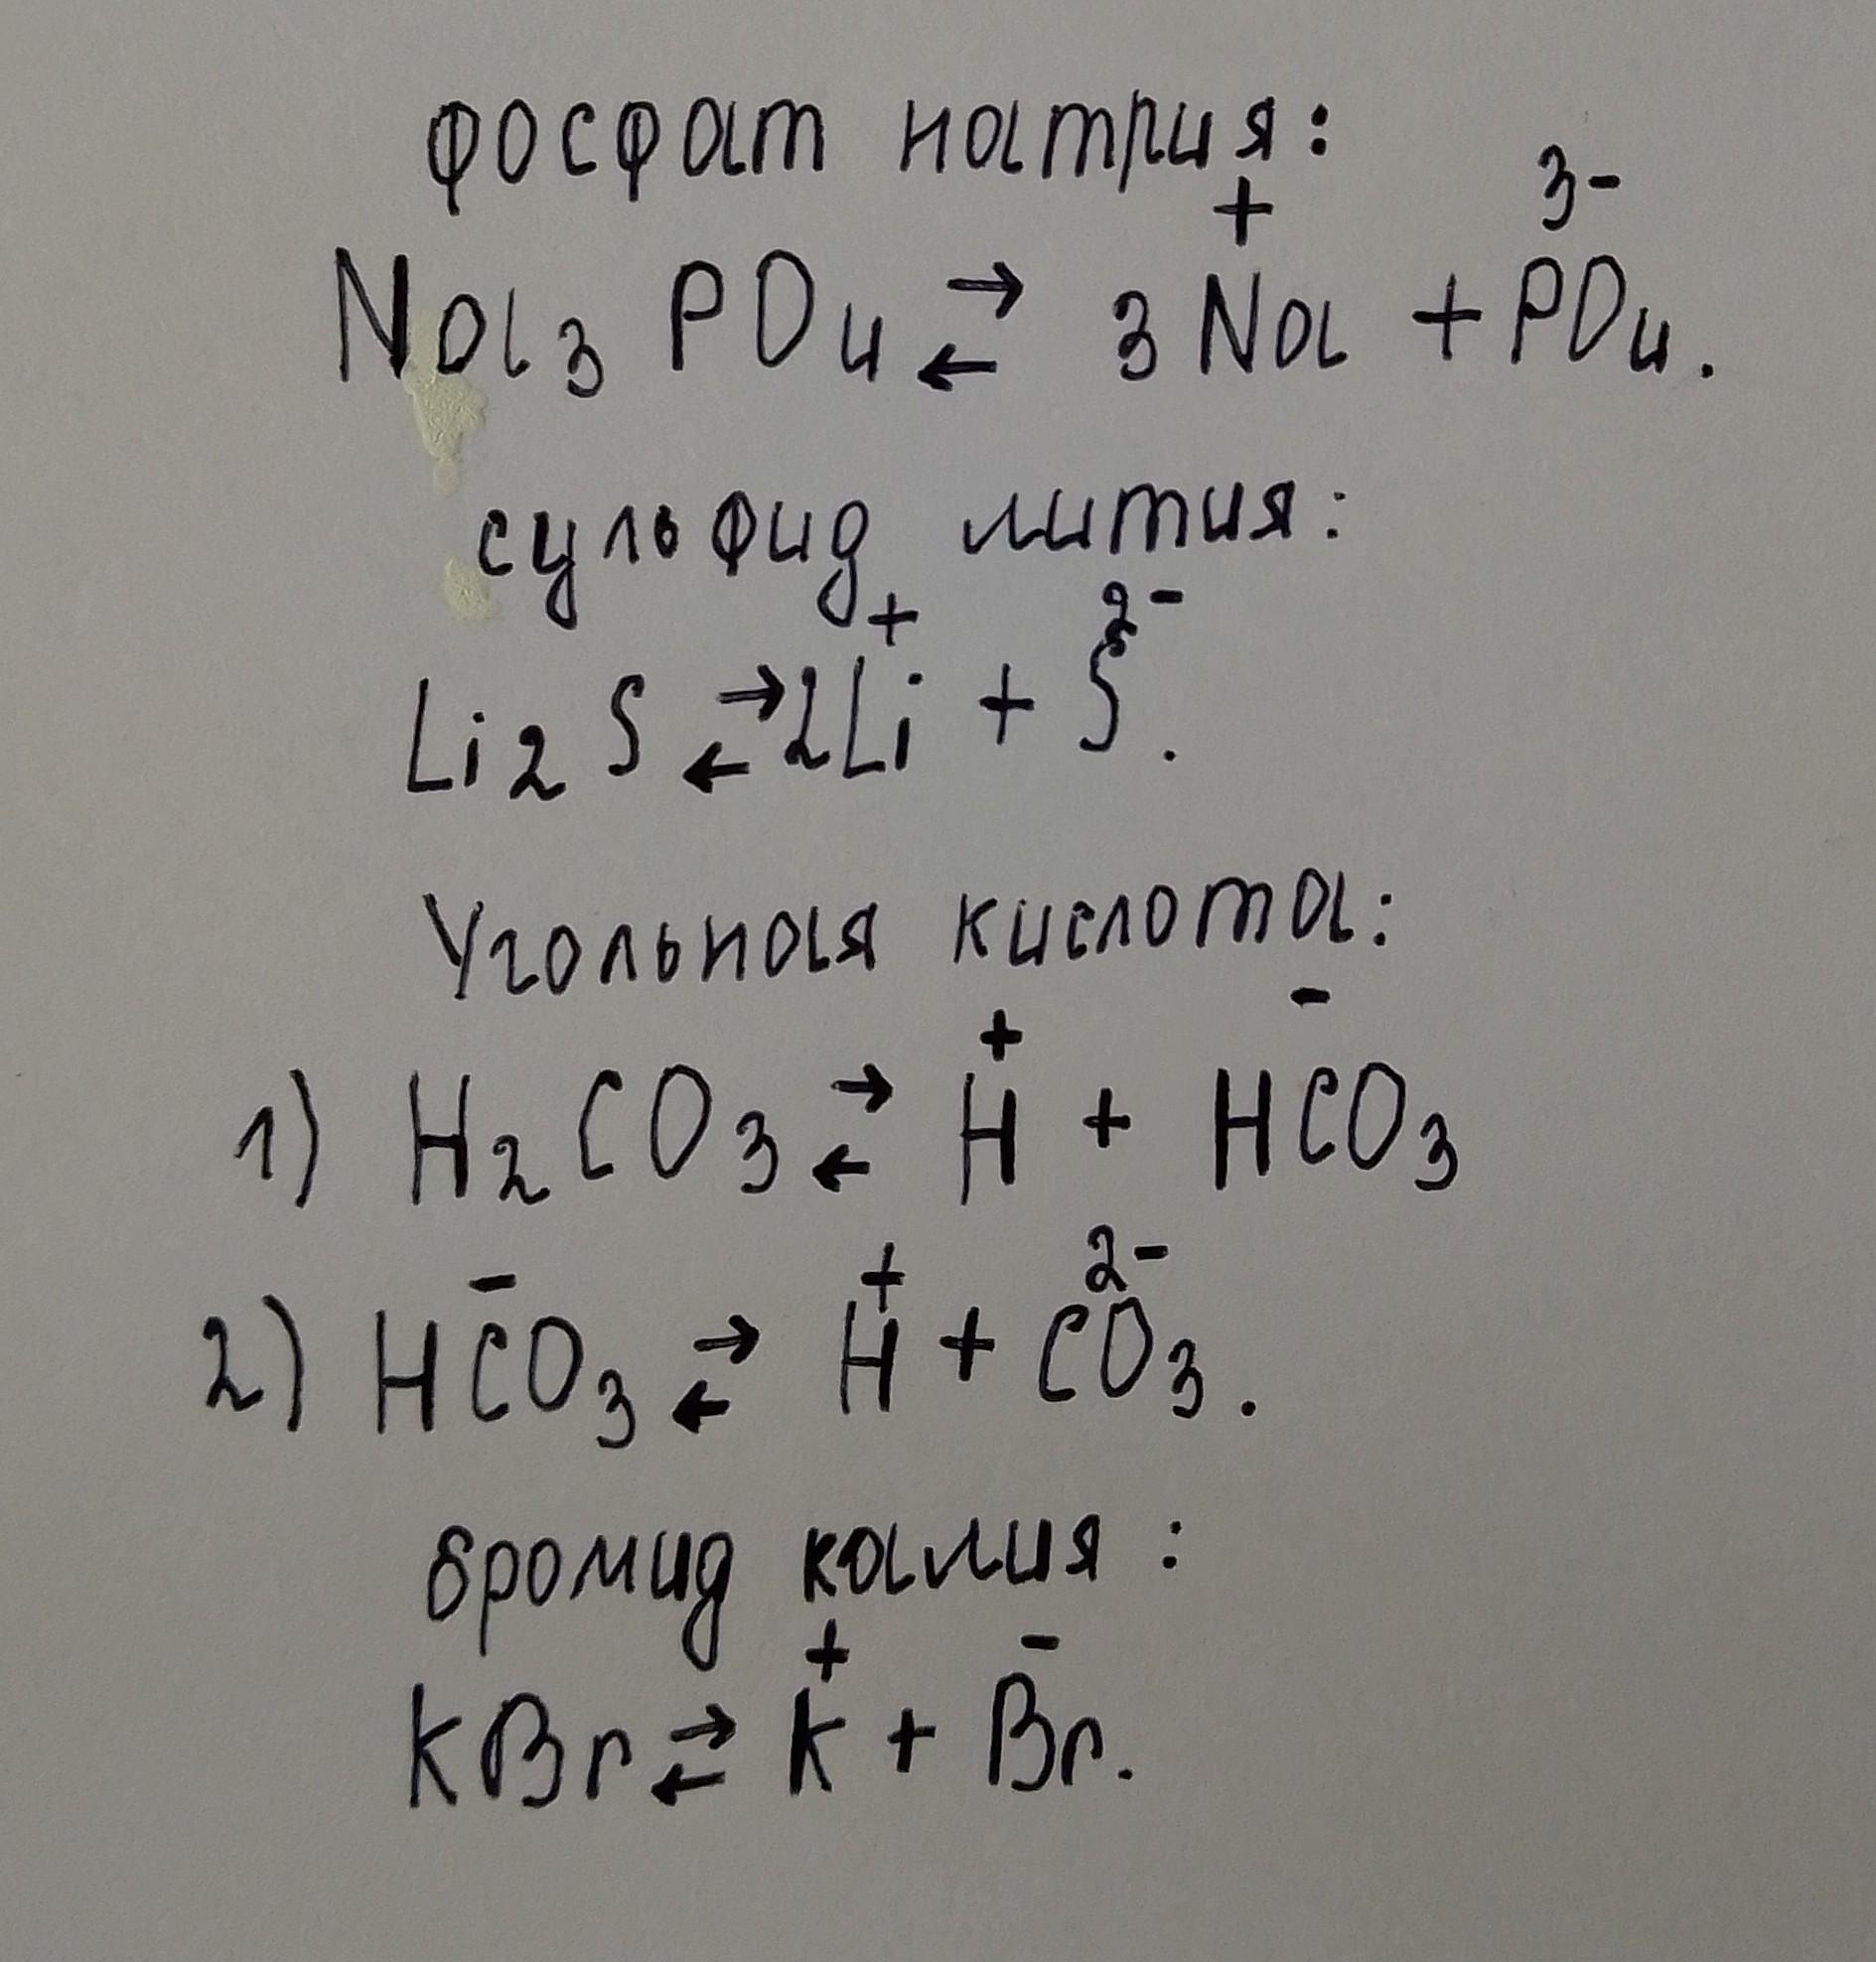 фосфат натрия:
Na₃PO₄ ⇄ 3Na⁺ + PO₄³⁻.
сульфид лития:
Li₂S ⇄ 2Li⁺ + S²⁻.
Угольная кислота:
1) H₂CO₃ ⇄ H⁺ + HCO₃⁻
2) HCO₃⁻ ⇄ H⁺ + CO₃²⁻.
бромид калия:
KBr ⇄ K⁺ + Br⁻.